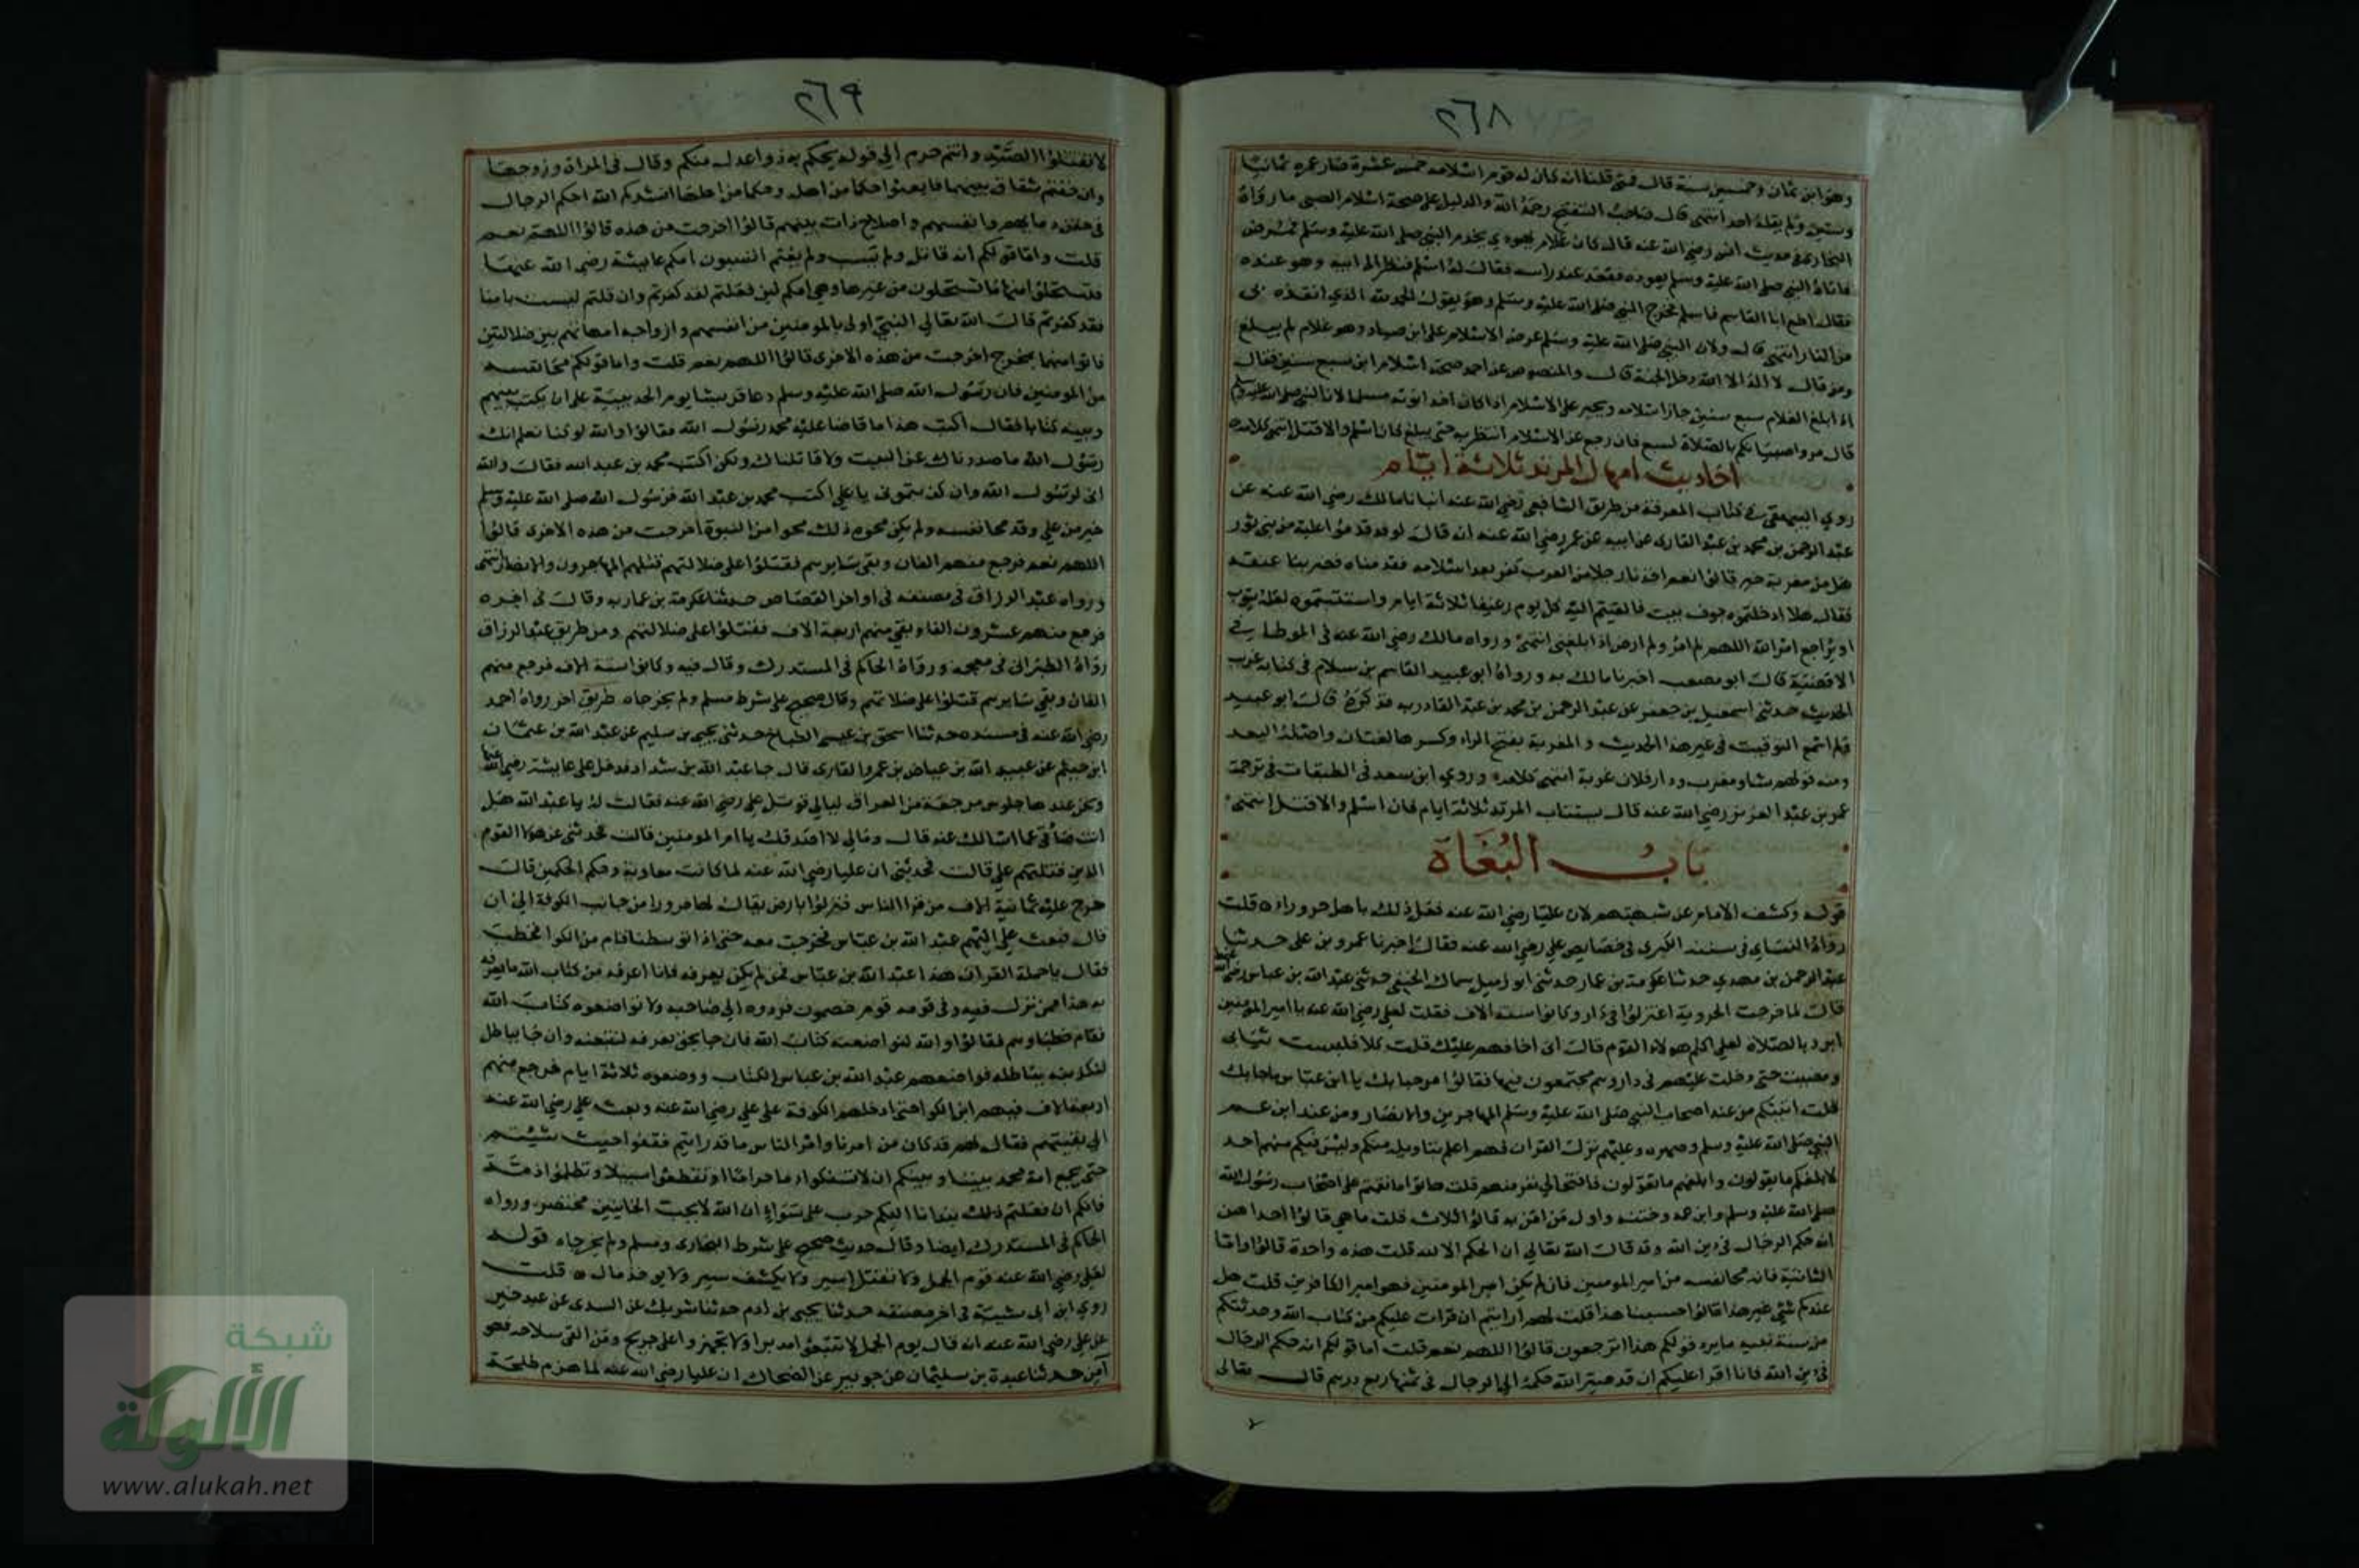 ٢٦٨
وهو ابن ثمان وخمسين سنة قال فمتى قلنا انه كان له يوم اسلامه خمس عشرة صار عمره ثمانيا
وستين ولم يقله احد انتهى قال صاحب التنقيح رحمه الله والدليل على صحة اسلام الصبي ما رواه
البخاري في حديث انس رضي الله عنه قال كان غلام يهودي يخدم النبي صلى الله عليه وسلم فمرض
فاتاه النبي صلى الله عليه وسلم يعوده فقعد عند راسه فقال له اسلم فنظر الى ابيه وهو عنده
فقال اطع ابا القاسم فاسلم فخرج النبي صلى الله عليه وسلم وهو يقول الحمد لله الذي انقذه بي
من النار انتهى قال ولان النبي صلى الله عليه وسلم عرض الاسلام على ابن صياد وهو غلام لم يبلغ
ومن قال لا اله الا الله دخل الجنة قال والمنصوص عن احمد صحة اسلام ابن سبع سنين فقال
اذا بلغ الغلام سبع سنين جاز اسلامه ويجبر على الاسلام اذا كان احد ابويه مسلما لان النبي صلى الله عليه وسلم
قال مروا صبيانكم بالصلاة لسبع فان رجع عن الاسلام انتظر به حتى يبلغ فان اسلم والا قتل انتهى كلامه
احاديث امهال المرتد ثلاثة ايام
روى البيهقي في كتاب المعرفة من طريق الشافعي رضي الله عنه انبانا مالك رضي الله عنه عن
عبد الرحمن بن محمد بن عبد القارى عن ابيه عن عمر رضي الله عنه انه قال لوفد قدموا عليه من بني ثور
هل من مغربة خبر قالوا نعم اخذنا رجلا من العرب كفر بعد اسلامه فقدمناه فضربنا عنقه
فقال هلا ادخلتموه جوف بيت فالقيتم اليه كل يوم رغيفا ثلاثة ايام واستتبتموه لعله يتوب
او يراجع امر الله اللهم لم امر ولم ارض اذ ابلغني انتهى ورواه مالك رضي الله عنه في الموطا في
الاقضية قال ابو مصعب اخبرنا مالك به ورواه ابو عبيد القاسم بن سلام في كتابه غريب
الحديث حدثني اسمعيل بن جعفر عن عبد الرحمن بن محمد بن عبد القادر به فذكره قال ابو عبيد
ولم اسمع التوقيت في غير هذا الحديث والمغربة بفتح الراء وكسرها لغتان واصله البعد
ومنه قولهم شاو مغرب ودار فلان غربة انتهى كلامه وروى ابن سعد في الطبقات في ترجمة
عمر بن عبد العزيز رضي الله عنه قال يستتاب المرتد ثلاثة ايام فان اسلم والا قتل انتهى
باب البغاة
قوله وكشف الامام عن شبهتهم لان عليا رضي الله عنه فعل ذلك باهل حروراء قلت
رواه النساي في سننه الكبرى في خصايص علي رضي الله عنه فقال اخبرنا عمرو بن علي حدثنا
عبد الرحمن بن مهدي حدثنا عكرمة بن عمار حدثني ابو زميل سماك الحنفي حدثني عبد الله بن عباس رضي الله عنهما
قال لما خرجت الحرورية اعتزلوا في دار وكانوا ستة الاف فقلت لعلي رضي الله عنه يا امير المومنين
ابرد بالصلاة لعلي اكلم هولاء القوم قال اني اخافهم عليك قلت كلا فلبست ثيابي
ومضيت حتى دخلت عليهم في دار وهم مجتمعون فيها فقالوا مرحبا بك يا ابن عباس ما جا بك
قلت اتيتكم من عند اصحاب النبي صلى الله عليه وسلم المهاجرين والانصار ومن عند ابن عم
النبي صلى الله عليه وسلم وصهره وعليهم نزل القران فهم اعلم بتاويله منكم وليس فيكم منهم احد
لابلغكم ما يقولون وابلغهم ما تقولون فانتحى لي نفر منهم قلت هاتوا ما نقمتم على اصحاب رسول الله
صلى الله عليه وسلم وابن عمه وختنه واول من امن به قالوا ثلاث قلت ما هي قالوا احداهن
انه حكم الرجال في دين الله وقد قال الله تعالى ان الحكم الا لله قلت هذه واحدة قالوا واما
الثانية فانه محا نفسه من امير المومنين فان لم يكن امير المومنين فهو امير الكافرين قلت هل
عندكم شي غير هذا قالوا حسبنا هذا قلت لهم ارايتم ان قرات عليكم من كتاب الله وحدثتكم
من سنة نبيه ما يرد قولكم هذا اترجعون قالوا اللهم نعم قلت اما قولكم انه حكم الرجال
في دين الله فانا اقرا عليكم ان قد صير الله حكمه الى الرجال في ثمنها ربع درهم قال تعالى
٢٦٩
لا تقتلوا الصيد وانتم حرم الى قوله يحكم به ذوا عدل منكم وقال في المراة وزوجها
وان خفتم شقاق بينهما فابعثوا حكما من اهله وحكما من اهلها انشدكم الله احكم الرجال
في حقن دمايهم وانفسهم واصلاح ذات بينهم قالوا اخرجت من هذه قالوا اللهم نعم
قلت واما قولكم انه قاتل ولم يسب ولم يغنم اتسبون امكم عايشة رضي الله عنها
فتستحلوا منها ما تستحلون من غيرها وهي امكم لين فعلتم لقد كفرتم وان قلتم ليست بامنا
فقد كفرتم قال الله تعالى النبي اولى بالمومنين من انفسهم وازواجه امهاتهم بين ضلالتين
فاتوا منهما بمخرج اخرجت من هذه الاخرى قالوا اللهم نعم قلت واما قولكم محا نفسه
من المومنين فان رسول الله صلى الله عليه وسلم دعا قريشا يوم الحديبية على ان يكتب بينهم
وبينه كتابا فقال اكتب هذا ما قاضا عليه محمد رسول الله فقالوا والله لو كنا نعلم انك
رسول الله ما صددناك عن البيت ولا قاتلناك ولكن اكتب محمد بن عبد الله فقال والله
اني لرسول الله وان كذبتموني يا علي اكتب محمد بن عبد الله فرسول الله صلى الله عليه وسلم
خير من علي وقد محا نفسه ولم يكن محوه ذلك محوا من النبوة اخرجت من هذه الاخرى قالوا
اللهم نعم فرجع منهم الفان وبقي سايرهم فقتلوا على ضلالتهم قتلهم المهاجرون والانصار انتهى
ورواه عبد الرزاق في مصنفه في اواخر القصاص حدثنا عكرمة بن عمار به وقال في اخره
فرجع منهم عشرون الفا وبقي منهم اربعة الاف فقتلوا على ضلالتهم ومن طريق عبد الرزاق
رواه الطبراني في معجمه ورواه الحاكم في المستدرك وقال فيه وكانوا ستة الاف فرجع منهم
الفان وبقي سايرهم قتلوا على ضلالتهم وقال صحيح على شرط مسلم ولم يخرجاه طريق اخر رواه احمد
رضي الله عنه في مسنده حدثنا اسحق بن عيسى الطباع حدثني يحيى بن سليم عن عبد الله بن عثمان
ابن خيثم عن عبيد الله بن عياض بن عمرو القارى قال جا عبد الله بن شداد فدخل على عايشة رضي الله عنها
ونحن عندها جلوس مرجعه من العراق ليالي قوتل علي رضي الله عنه فقالت له يا عبد الله هل
انت صادقي عما اسالك عنه قال ومالي لا اصدقك يا ام المومنين قالت فحدثني عن هولا القوم
الذين قتلهم علي قالت فحدثني ان عليا رضي الله عنه لما كاتب معاوية وحكم الحكمين قال
خرج عليه ثمانية الاف من قرا الناس فنزلوا بارض يقال لها حرورا من جانب الكوفة الى ان
قال فبعث علي اليهم عبد الله بن عباس فخرجت معه حتى اذا توسطنا قام ابن الكوا فخطب
فقال يا حملة القران هذا عبد الله بن عباس فمن لم يكن يعرفه فانا اعرفه من كتاب الله ما يعرفه
به هذا ممن نزل فيه وفي قومه قوم خصمون فردوه الى صاحبه ولا تواضعوه كتاب الله
فقام خطباوهم فقالوا والله لنواضعنه كتاب الله فان جا بحق نعرفه لنتبعنه وان جا بباطل
لنكبتنه بباطله فواضعهم عبد الله بن عباس الكتاب وواضعوه ثلاثة ايام فرجع منهم
اربعة الاف فيهم ابن الكوا حتى ادخلهم الكوفة على علي رضي الله عنه وبعث علي رضي الله عنه
الى بقيتهم فقال لهم قد كان من امرنا وامر الناس ما قد رايتم فقفوا حيث شيتم
حتى تجمع امة محمد بيننا وبينكم ان لا تسفكوا دما حراما او تقطعوا سبيلا او تظلموا ذمة
فانكم ان فعلتم ذلك نبذنا اليكم حرب على سواء ان الله لا يحب الخاينين مختصر ورواه
الحاكم في المستدرك ايضا وقال حديث صحيح على شرط البخاري ومسلم ولم يخرجاه قوله
لعلي رضي الله عنه يوم الجمل ولا يقتل اسير ولا يكشف ستر ولا يوخذ مال قلت
روى ابن ابي شيبة في اخر مصنفه حدثنا يحيى بن ادم حدثنا شريك عن السدي عن عبد خير
عن علي رضي الله عنه انه قال يوم الجمل لا تتبعوا مدبرا ولا تجهزوا على جريح ومن القى سلاحه فهو
آمن حدثنا عبدة بن سليمان عن جويبر عن الضحاك ان عليا رضي الله عنه لما هزم طلحة
شبكة
الألوكة
www.alukah.net